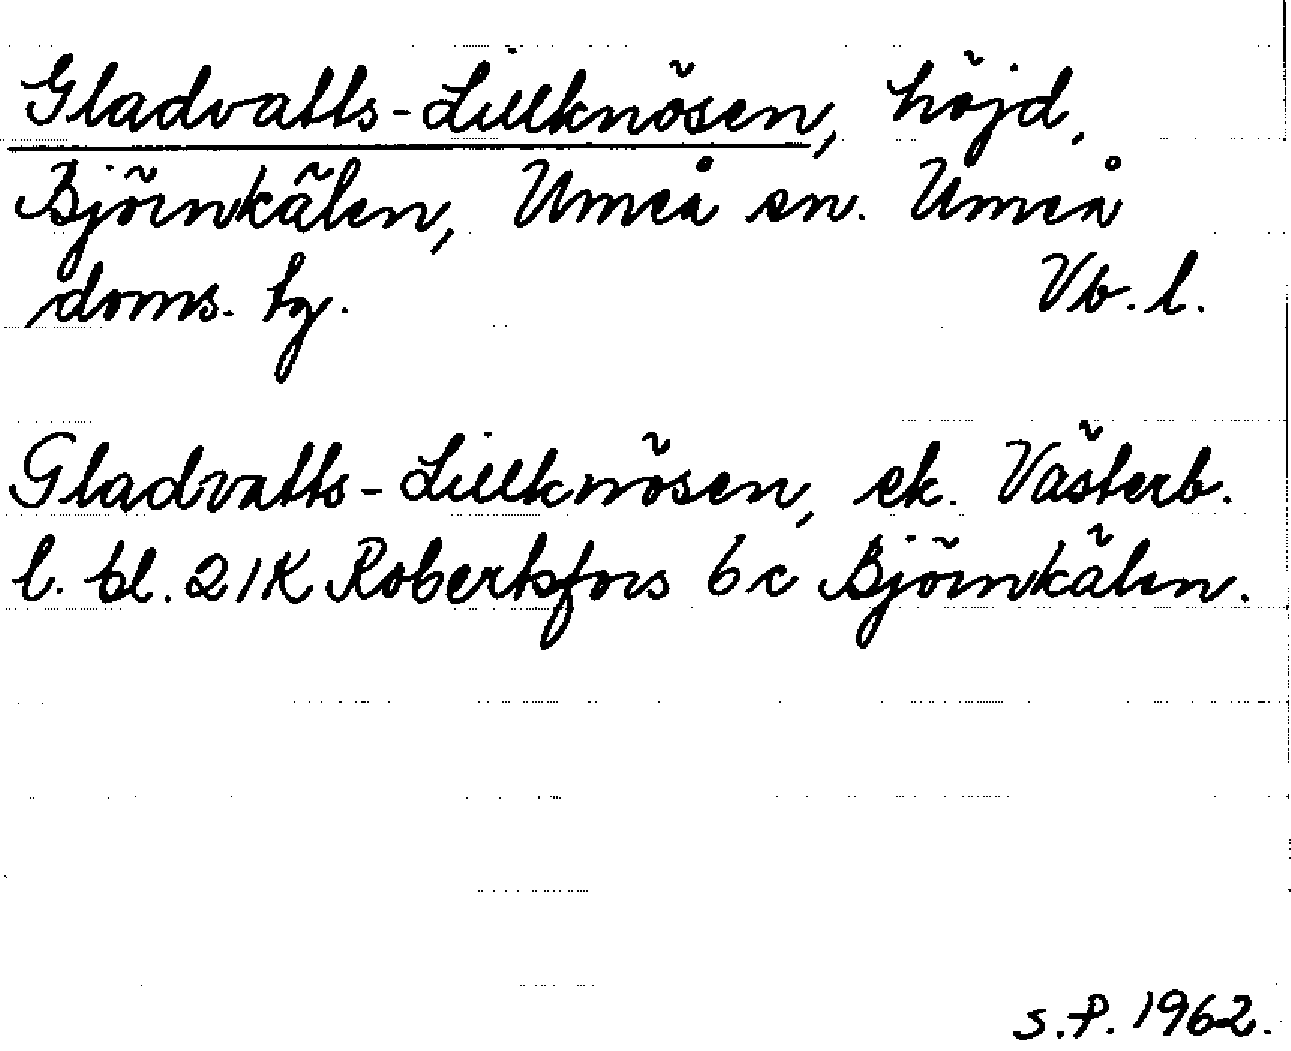 Gladvatts-Lillknösen, höjd,
Björnkälen, Umeå sn. Umeå
doms. tg. Vb. l.
Gladvatts-Lillknösen, ek. Västerb.
l. bl. 21K Robertsfors 6 c Björnkälen.
S.P. 1962.